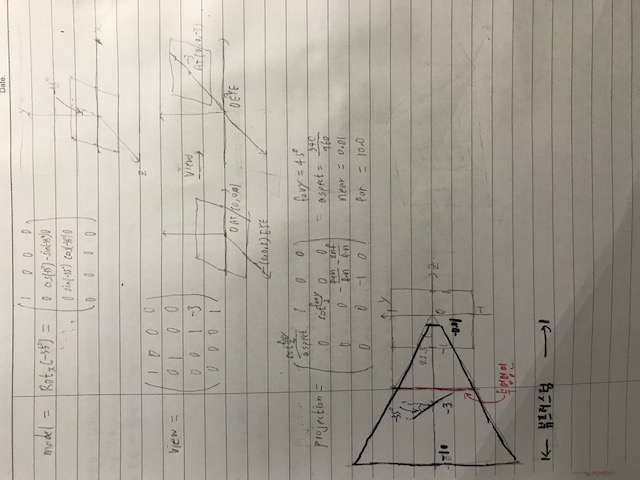 Date.
model = Rotx(-55°) =
1 0 0 0
0 cos(-55°) -sin(-55°) 0
0 sin(-55°) cos(-55°) 0
0 0 0 0
Y
-55°
X
Z
view =
1 0 0 0
0 1 0 0
0 0 1 -3
0 0 0 1
View
→
-3
AT(0,0,-3)
O AT (0,0,0)
O EYE
(0,0,3) EYE
projection =
cot fovy/2 / aspect 0 0 0
0 cot fovy/2 0 0
0 0 -f+n/f-n -2nf/f-n
0 0 -1 0
=
fovy = 45°
aspect = 540/960
near = 0.01
far = 10.0
Y
-55°
22.5
-10
-3
-1
-0.01
0
Z
1
-1
투영면
|← 뷰프러스텀 →|